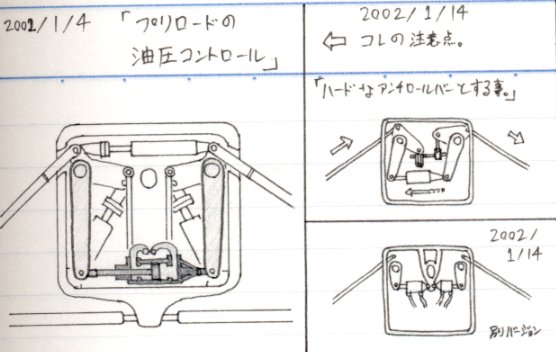 2002/1/4 「プリロードの
油圧コントロール」
2002/1/14
⇦ コレの注意点。
「ハードなアンチロールバーとする事。」
2002/
1/14
別バージョン